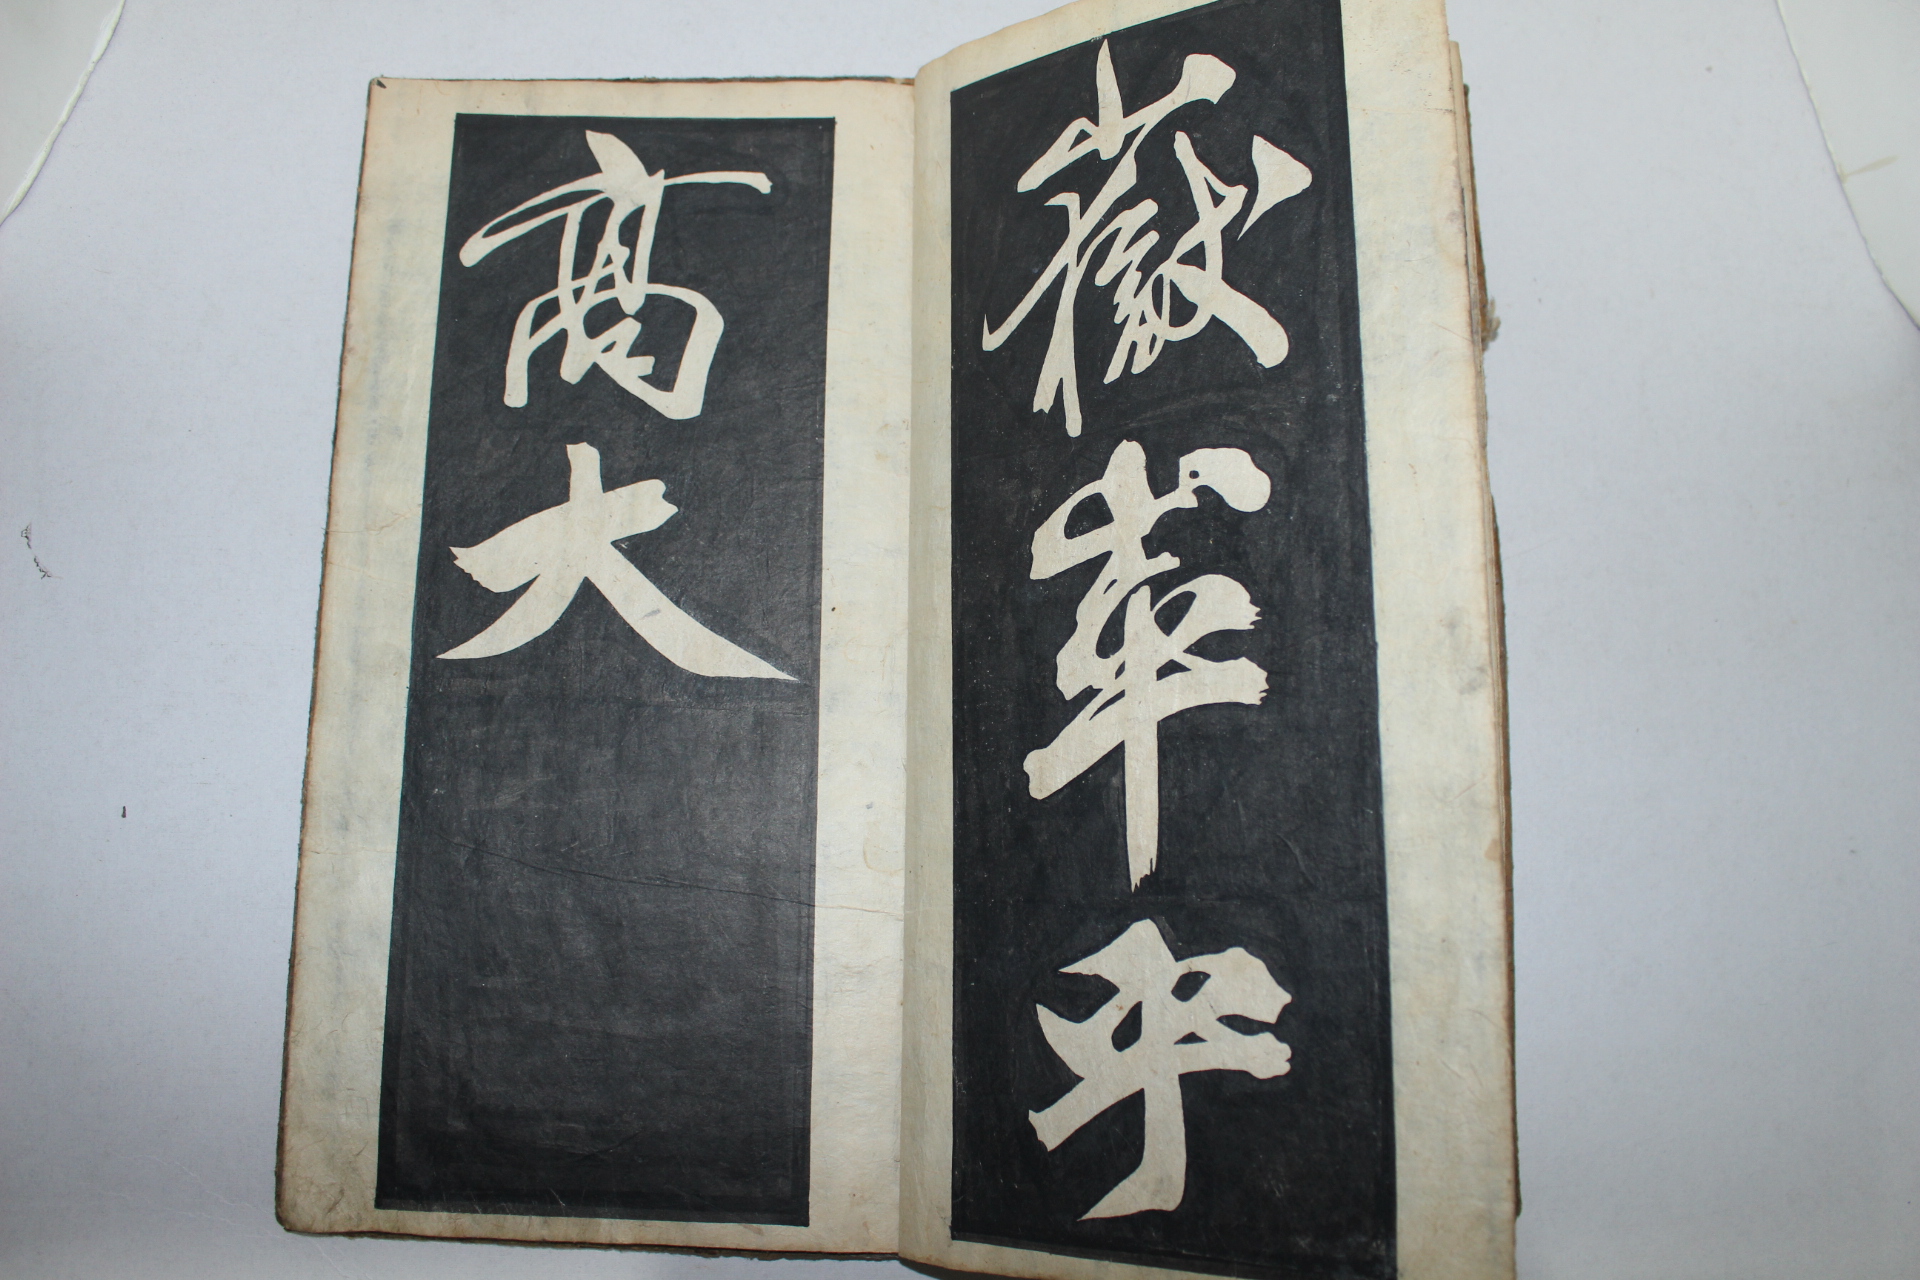 嶽崒乎
高大